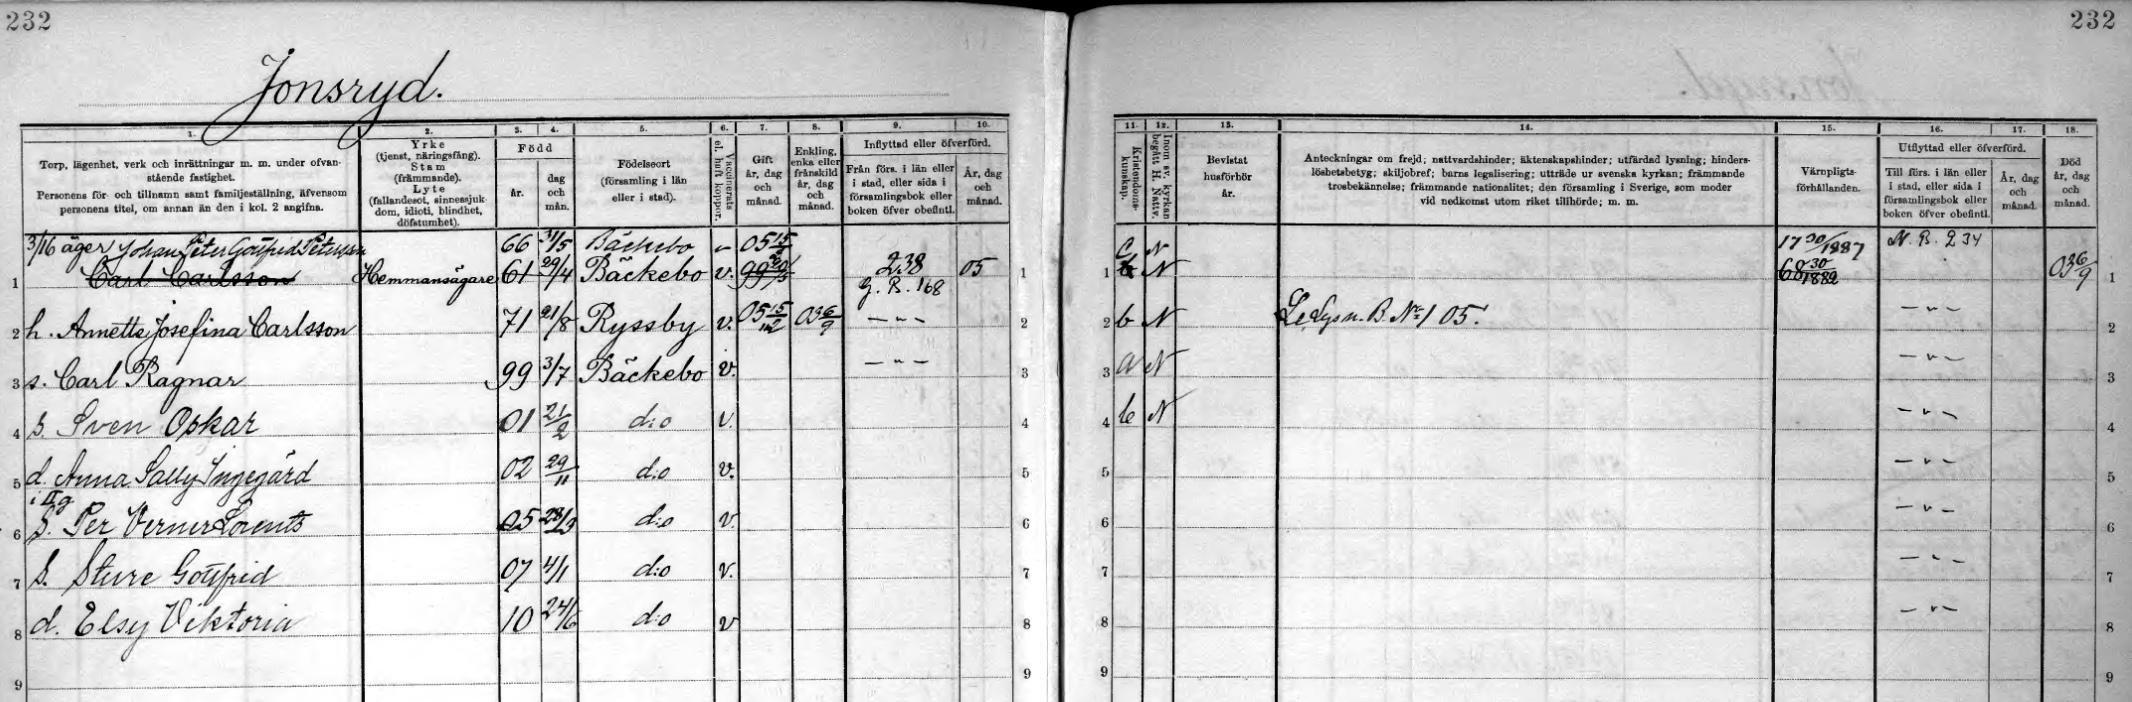 232
232
Jonsryd.
1.
2.
3.
4.
5.
6.
7.
8.
9.
10.
Torp, lägenhet, verk och inrättningar m. m. under ofvan-
stående fastighet.
Personens för- och tillnamn samt familjeställning, äfvensom
personens titel, om annan än den i kol. 2 angifna.
Yrke
(tjenst, näringsfång).
Stam
(främmande).
Lyte
(fallandesot, sinnessjuk-
dom, idioti, blindhet,
döfstumhet).
Född
år.
dag
och
mån.
Födelseort
(församling i län
eller i stad).
Vaccinerats
el. haft koppor.
Gift
år, dag
och
månad.
Enkling,
enka eller
frånskild
år, dag
och
månad.
Inflyttad eller öfverförd.
Från förs. i län eller
i stad, eller sida i
församlingsbok eller
boken öfver obefintl.
År, dag
och
månad.
11.
12.
13.
14.
15.
16.
17.
18.
Kristendoms-
kunskap.
Inom sv. kyrkan
begått H. Nattv.
Bevistat
husförhör
år.
Anteckningar om frejd; nattvardshinder; äktenskapshinder; utfärdad lysning; hinders-
löshetsbetyg; skiljobref; barns legalisering; utträde ur svenska kyrkan; främmande
trosbekännelse; främmande nationalitet; den församling i Sverige, som moder
vid nedkomst utom riket tillhörde; m. m.
Värnpligts-
förhållanden.
Utflyttad eller öfverförd.
Till förs. i län eller
i stad, eller sida i
församlingsbok eller
boken öfver obefintl.
År, dag
och
månad.
Död
år, dag
och
månad.
3/16 äger Johan Peter Gottfrid Petersson 66 31/5 Bäckebo 05 15/12 C N 17 30/1887 N. B. 234
1 Carl Carlsson Hemmansägare 61 29/4 Bäckebo v. 238 05 1 1 N 68 30/1882 03 6/9 1
G. B. 168
2 h. Annette Josefina Carlsson 71 21/8 Ryssby v. 05 15/12 03 6/9 – " – 2 2 b N Lysn. B. No 1 05. – " – 2
3 s. Carl Ragnar 99 3/7 Bäckebo v. – " – 3 3 a N – " – 3
4 s. Sven Oskar 01 21/2 d:o v. 4 4 N – " – 4
5 d. Anna Sally Ingegärd 02 29/11 d:o v. 5 5 – " – 5
i II g
6 S. Per Verner Lorents 05 28/12 d:o v. 6 6 – " – 6
7 S. Sture Gottfrid 07 4/1 d:o v. 7 7 – " – 7
8 d. Elsy Viktoria 10 24/6 d:o v 8 8 – " – 8
9 9 9 9